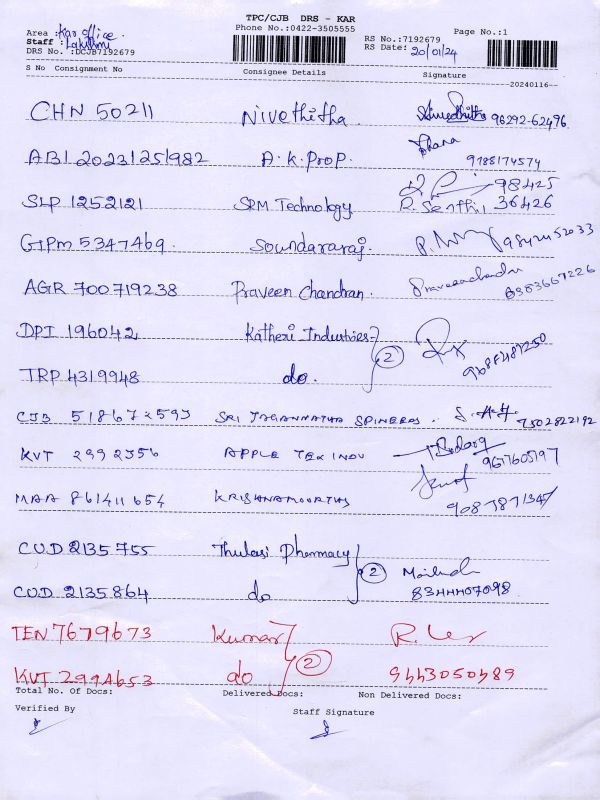 TPC/CJB DRS - KAR
Phone No.:0422-3505555
Area : Kar office.
Staff : Lakshmi
DRS No. :DCJB7192679
RS No.:7192679
RS Date: 20/01/24
Page No.:1
S No Consignment No Consignee Details Signature
20240116
CHN 50211 Nivethitha 96292-62496
ABI 20231251982 A.K.Prop. Dhana 9788174574
SLP 1252121 SRM Technology R. Senthil 98425 36426
GTPM 5347469. Soundararaj.
AGR 700719238 Praveen Chandran. 8383667226
DPI 196042 Katheri Industries
TRP 4319948 do. 2
CJB 518672593 SRI JAGANNATHA SPINERS. 7502822192
KVT 2992356 APPLE TEX INDU
MAA 861411654 KRISHNAMOORTHY
CUD 2135755 Thulasi Pharmacy
CUD 2135864 do 2
TEN 7679673 Kumar
KVT 2994653 do 2 9443050489
Total No. Of Docs: Delivered Docs: Non Delivered Docs:
Verified By Staff Signature